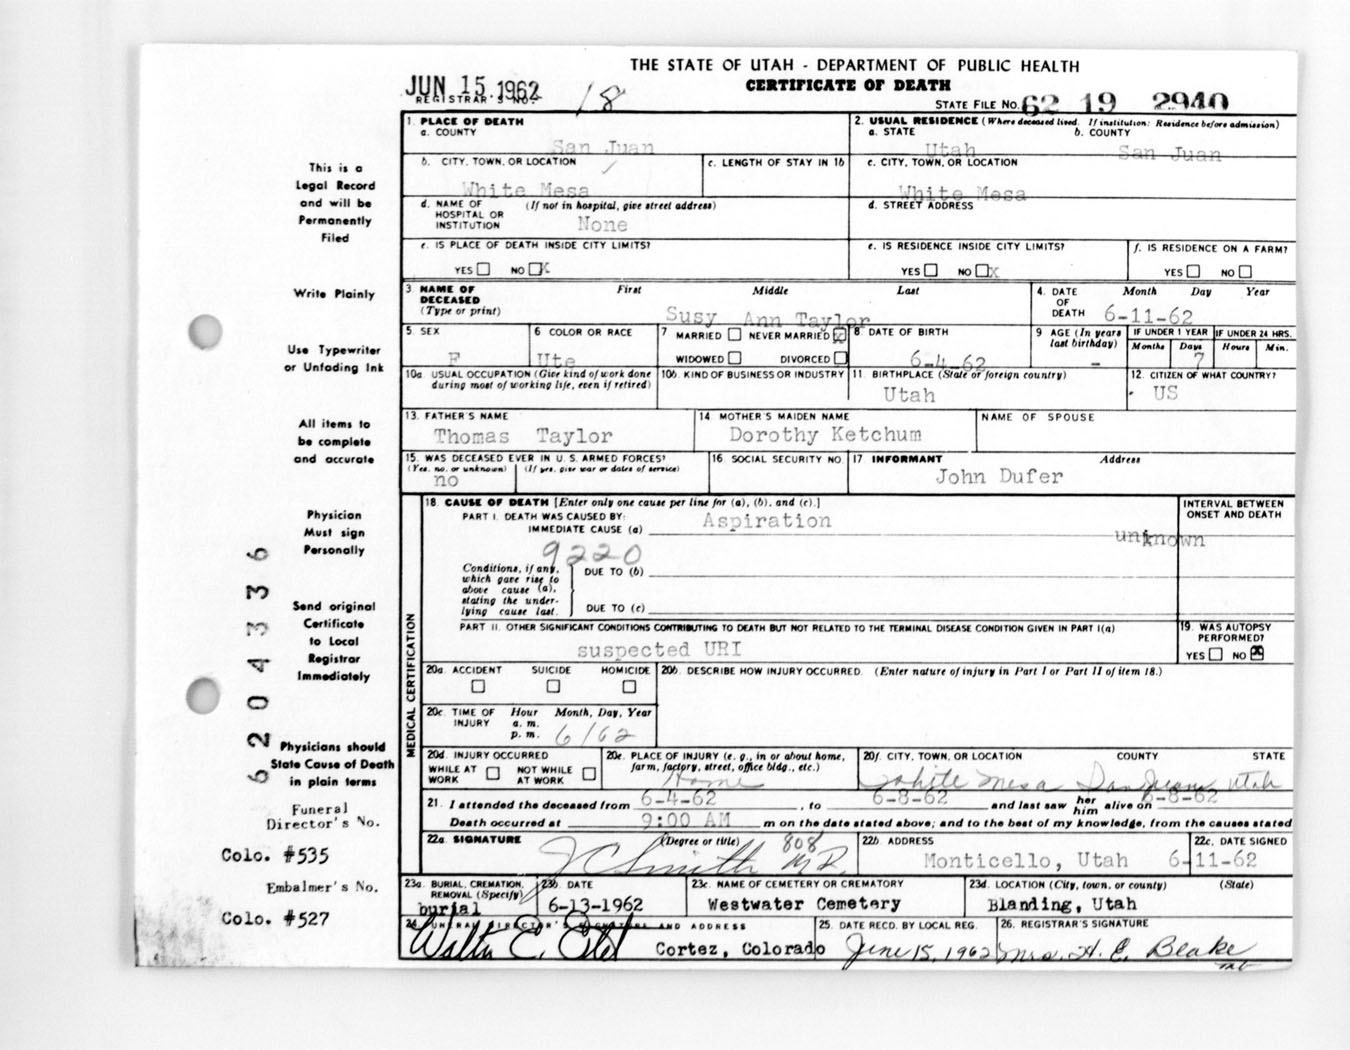 THE STATE OF UTAH - DEPARTMENT OF PUBLIC HEALTH
CERTIFICATE OF DEATH
JUN 15 1962
REGISTRAR'S NO. 18
STATE FILE NO. 62 19 2940
This is a
Legal Record
and will be
Permanently
Filed
Write Plainly
Use Typewriter
or Unfading Ink
All items to
be complete
and accurate
Physician
Must sign
Personally
Send original
Certificate
to Local
Registrar
Immediately
Physicians should
State Cause of Death
in plain terms
Funeral
Director's No.
Colo. #535
Embalmer's No.
Colo. #527
6204336
1. PLACE OF DEATH
a. COUNTY
San Juan
2. USUAL RESIDENCE (Where deceased lived. If institution: Residence before admission)
a. STATE b. COUNTY
Utah San Juan
b. CITY, TOWN, OR LOCATION
White Mesa
c. LENGTH OF STAY IN 1b
c. CITY, TOWN, OR LOCATION
White Mesa
d. NAME OF HOSPITAL OR INSTITUTION (If not in hospital, give street address)
None
d. STREET ADDRESS
e. IS PLACE OF DEATH INSIDE CITY LIMITS?
YES NO X
e. IS RESIDENCE INSIDE CITY LIMITS?
YES NO X
f. IS RESIDENCE ON A FARM?
YES NO
3. NAME OF DECEASED (Type or print) First Middle Last
Susy Ann Taylor
4. DATE OF DEATH Month Day Year
6-11-62
5. SEX
F
6. COLOR OR RACE
Ute
7 MARRIED NEVER MARRIED X
WIDOWED DIVORCED
8. DATE OF BIRTH
6-4-62
9 AGE (In years last birthday)
-
IF UNDER 1 YEAR IF UNDER 24 HRS.
Months Days Hours Min.
7
10a. USUAL OCCUPATION (Give kind of work done during most of working life, even if retired)
10b. KIND OF BUSINESS OR INDUSTRY
11. BIRTHPLACE (State or foreign country)
Utah
12. CITIZEN OF WHAT COUNTRY?
US
13. FATHER'S NAME
Thomas Taylor
14 MOTHER'S MAIDEN NAME
Dorothy Ketchum
NAME OF SPOUSE
15. WAS DECEASED EVER IN U. S. ARMED FORCES?
(Yes, no. or unknown) (If yes, give war or dates of service)
no
16. SOCIAL SECURITY NO.
17 INFORMANT Address
John Dufer
MEDICAL CERTIFICATION
18. CAUSE OF DEATH [Enter only one cause per line for (a), (b), and (c).]
PART I. DEATH WAS CAUSED BY:
IMMEDIATE CAUSE (a) Aspiration
INTERVAL BETWEEN ONSET AND DEATH
unknown
9220
Conditions, if any, which gave rise to above cause (a), stating the underlying cause last.
DUE TO (b)
DUE TO (c)
PART II. OTHER SIGNIFICANT CONDITIONS CONTRIBUTING TO DEATH BUT NOT RELATED TO THE TERMINAL DISEASE CONDITION GIVEN IN PART I(a)
suspected URI
19. WAS AUTOPSY PERFORMED?
YES NO X
20a. ACCIDENT SUICIDE HOMICIDE
20b. DESCRIBE HOW INJURY OCCURRED. (Enter nature of injury in Part I or Part II of item 18.)
20c. TIME OF INJURY Hour Month, Day, Year
a. m.
p. m. 6/62
20d. INJURY OCCURRED
WHILE AT WORK NOT WHILE AT WORK
20e. PLACE OF INJURY (e. g., in or about home, farm, factory, street, office bldg., etc.)
Home
20f. CITY, TOWN, OR LOCATION COUNTY STATE
White Mesa San Juan Utah
21. I attended the deceased from 6-4-62, to 6-8-62 and last saw her him alive on 6-8-62
Death occurred at 9:00 AM m on the date stated above; and to the best of my knowledge, from the causes stated
22a. SIGNATURE (Degree or title)
J C Smith M.D. 808
22b ADDRESS
Monticello, Utah
22c. DATE SIGNED
6-11-62
23a. BURIAL, CREMATION, REMOVAL (Specify)
burial
23b. DATE
6-13-1962
23c. NAME OF CEMETERY OR CREMATORY
Westwater Cemetery
23d. LOCATION (City, town, or county) (State)
Blanding, Utah
24. FUNERAL DIRECTOR'S SIGNATURE AND ADDRESS
Walter E. Cortez, Colorado
25. DATE RECD. BY LOCAL REG.
June 15, 1962
26. REGISTRAR'S SIGNATURE
Mrs. H. E. Blake